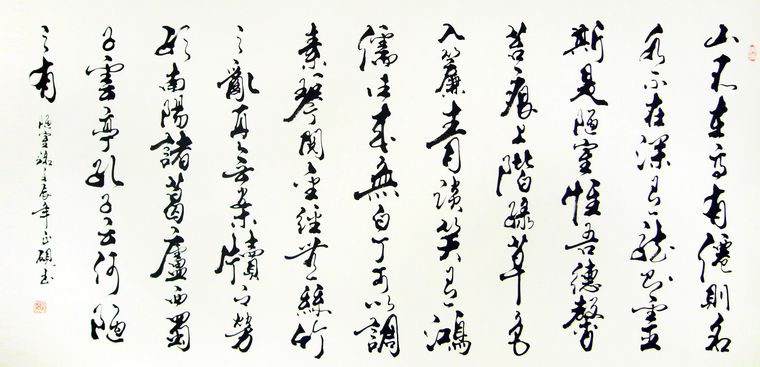 山不在高有僊則名
水不在深有龍則靈
斯是陋室惟吾德馨
苔痕上階綠草色
入簾青談笑有鴻
儒往来無白丁可以調
素琴閱金經無絲竹
之亂耳無案牘之勞
形南陽諸葛廬西蜀
子雲亭孔子云何陋
之有
陋室銘壬辰年正硯书